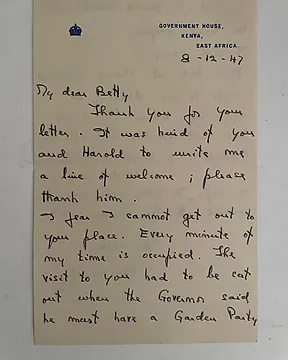 GOVERNMENT HOUSE,
KENYA,
EAST AFRICA.
8-12-47
My dear Betty
Thank you for your
letter. It was kind of you
and Harold to write me
a line of welcome; please
thank him.
I fear I cannot get out to
your place. Every minute of
my time is occupied. The
visit to you had to be cut
out when the Governor said
he must have a Garden Party